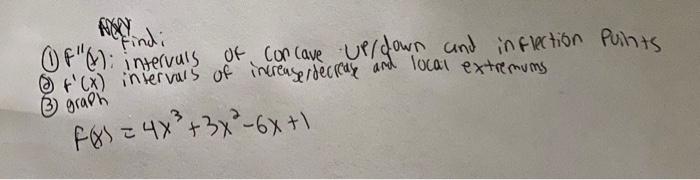 Find:
① f"(x): intervals of concave up/down and inflection points
② f'(x) intervals of increase/decrease and local extremums
③ graph
f(x) = 4x³+3x²-6x+1